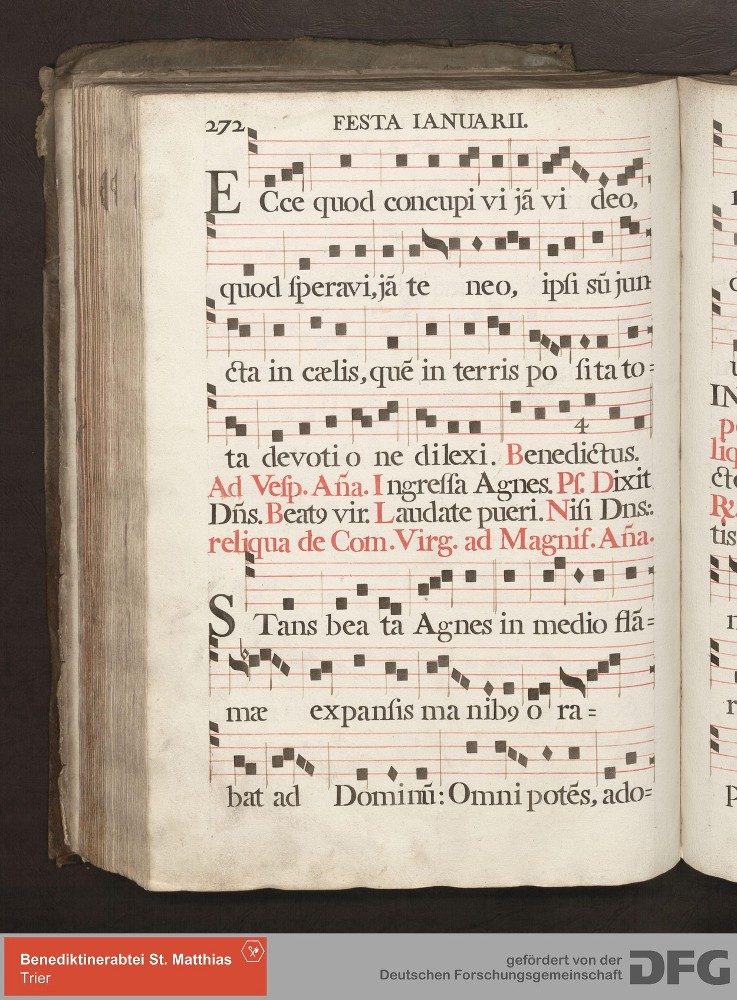 272 FESTA IANUARII.
ECce quod concupi vi jã vi deo,
quod ſperavi, jã te neo, ipſi sũ jun
cta in cælis, quẽ in terris po ſita to=
4
ta devoti o ne dilexi. Benedictus.
Ad Veſp. Aña. Ingreſſa Agnes. Pſ. Dixit
Dñs. Beat9 vir. Laudate pueri. Niſi Dns:.
reliqua de Com. Virg. ad Magnif. Aña.
STans bea ta Agnes in medio flã=
mæ expanſis ma nib9 o ra=
bat ad Dominũ: Omni potẽs, ado=
Benediktinerabtei St. Matthias
Trier
gefördert von der
Deutschen Forschungsgemeinschaft
DFG